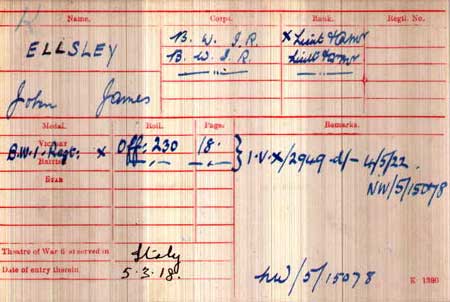 Name. Corps. Rank. Regtl. No.
ELLSLEY B. W. I. R. X Lieut & Qmr
B. W. I. R. Lieut & Qmr
John James
Medal. Roll. Page. Remarks.
Victory
B.W.I. Regt. X Off. 230 18. } I.V.X/2949 d/- 4/5/22.
British
Star NW/5/15078
Theatre of War first served in Italy
Date of entry therein 5.3.18. NW/5/15078
K 1380